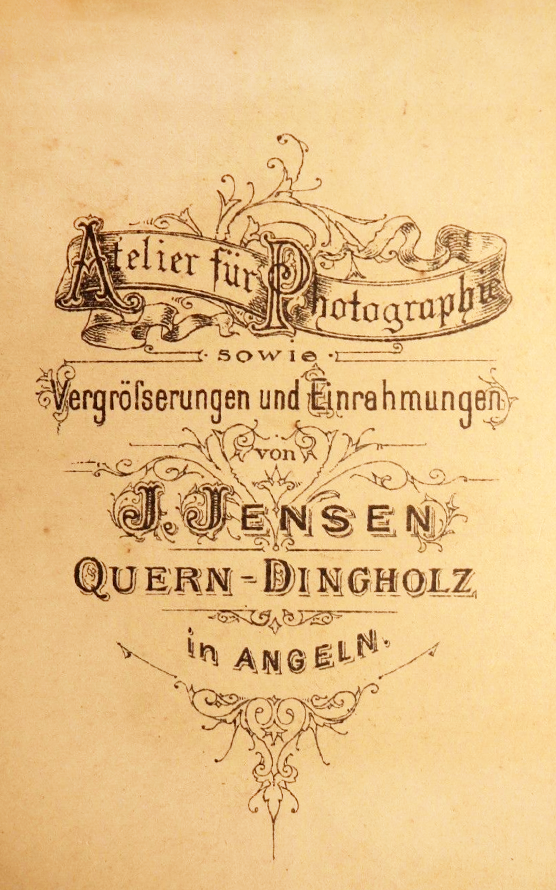 Atelier für Photographie
sowie
Vergröſserungen und Einrahmungen
von
J. JENSEN
QUERN-DINGHOLZ
in ANGELN.